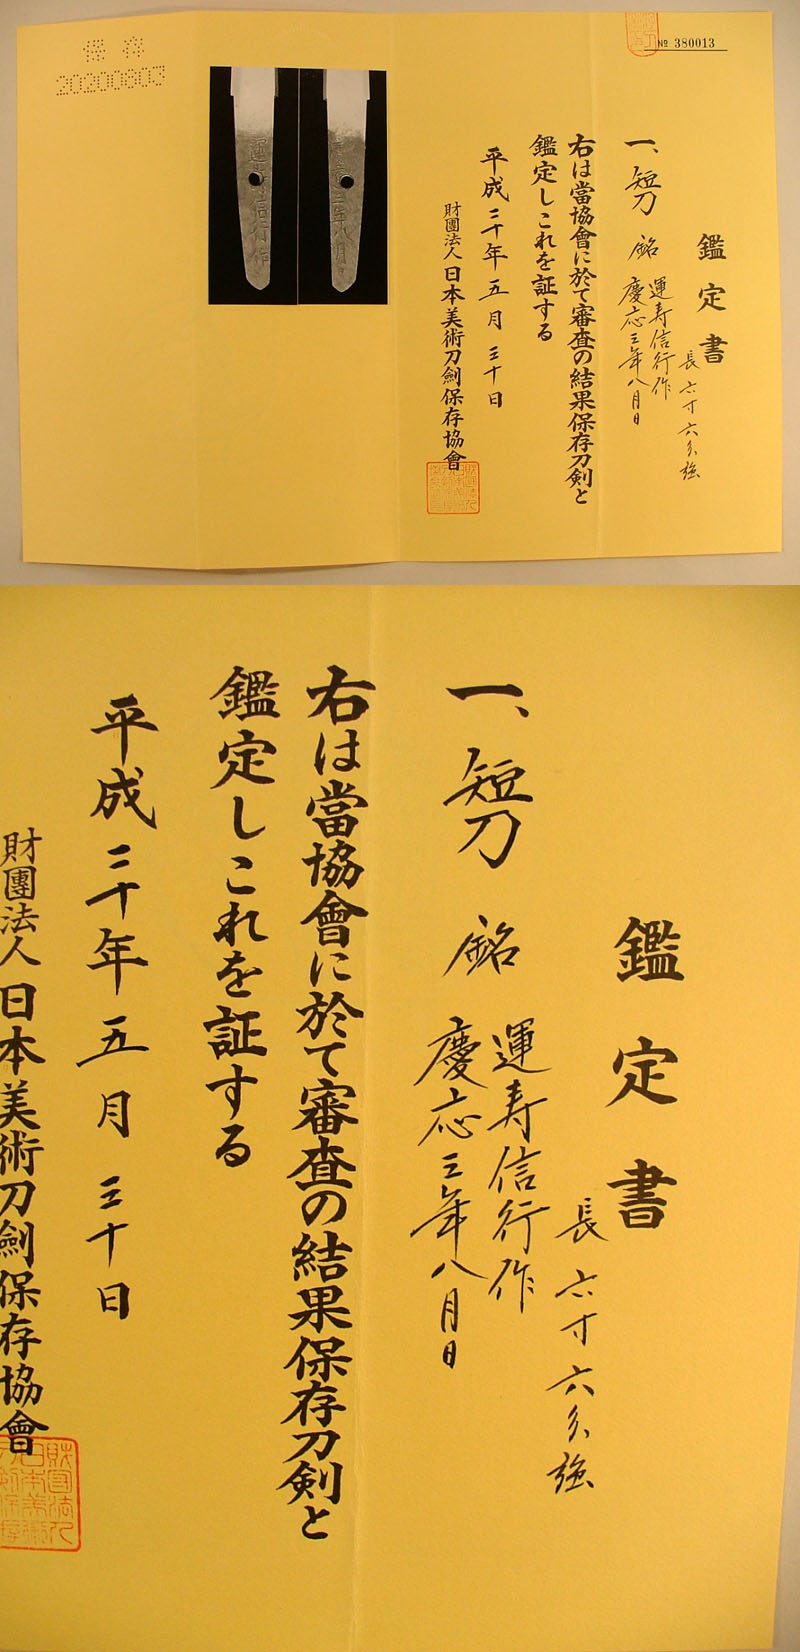 № 380013
鑑定書
長六寸六分強
一、短刀 銘 運寿信行作
慶応三年八月日
右は當協會に於て審査の結果保存刀剣と
鑑定しこれを証する
平成二十年五月三十日
財團法人日本美術刀劍保存協會
保存
20200803
鑑定書
長六寸六分強
一、短刀 銘 運寿信行作
慶応三年八月日
右は當協會に於て審査の結果保存刀剣と
鑑定しこれを証する
平成二十年五月三十日
財團法人日本美術刀劍保存協會